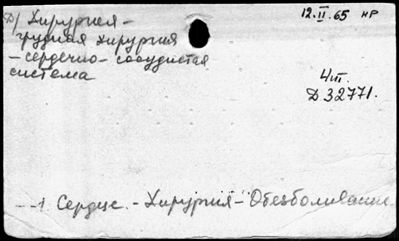 Д) Хирургия -
грудная хирургия
- сердечно - сосудистая
система
12.II.65 НР
4 т.
Д 32771.
- - 1. Сердце. - Хирургия - Обезболивание